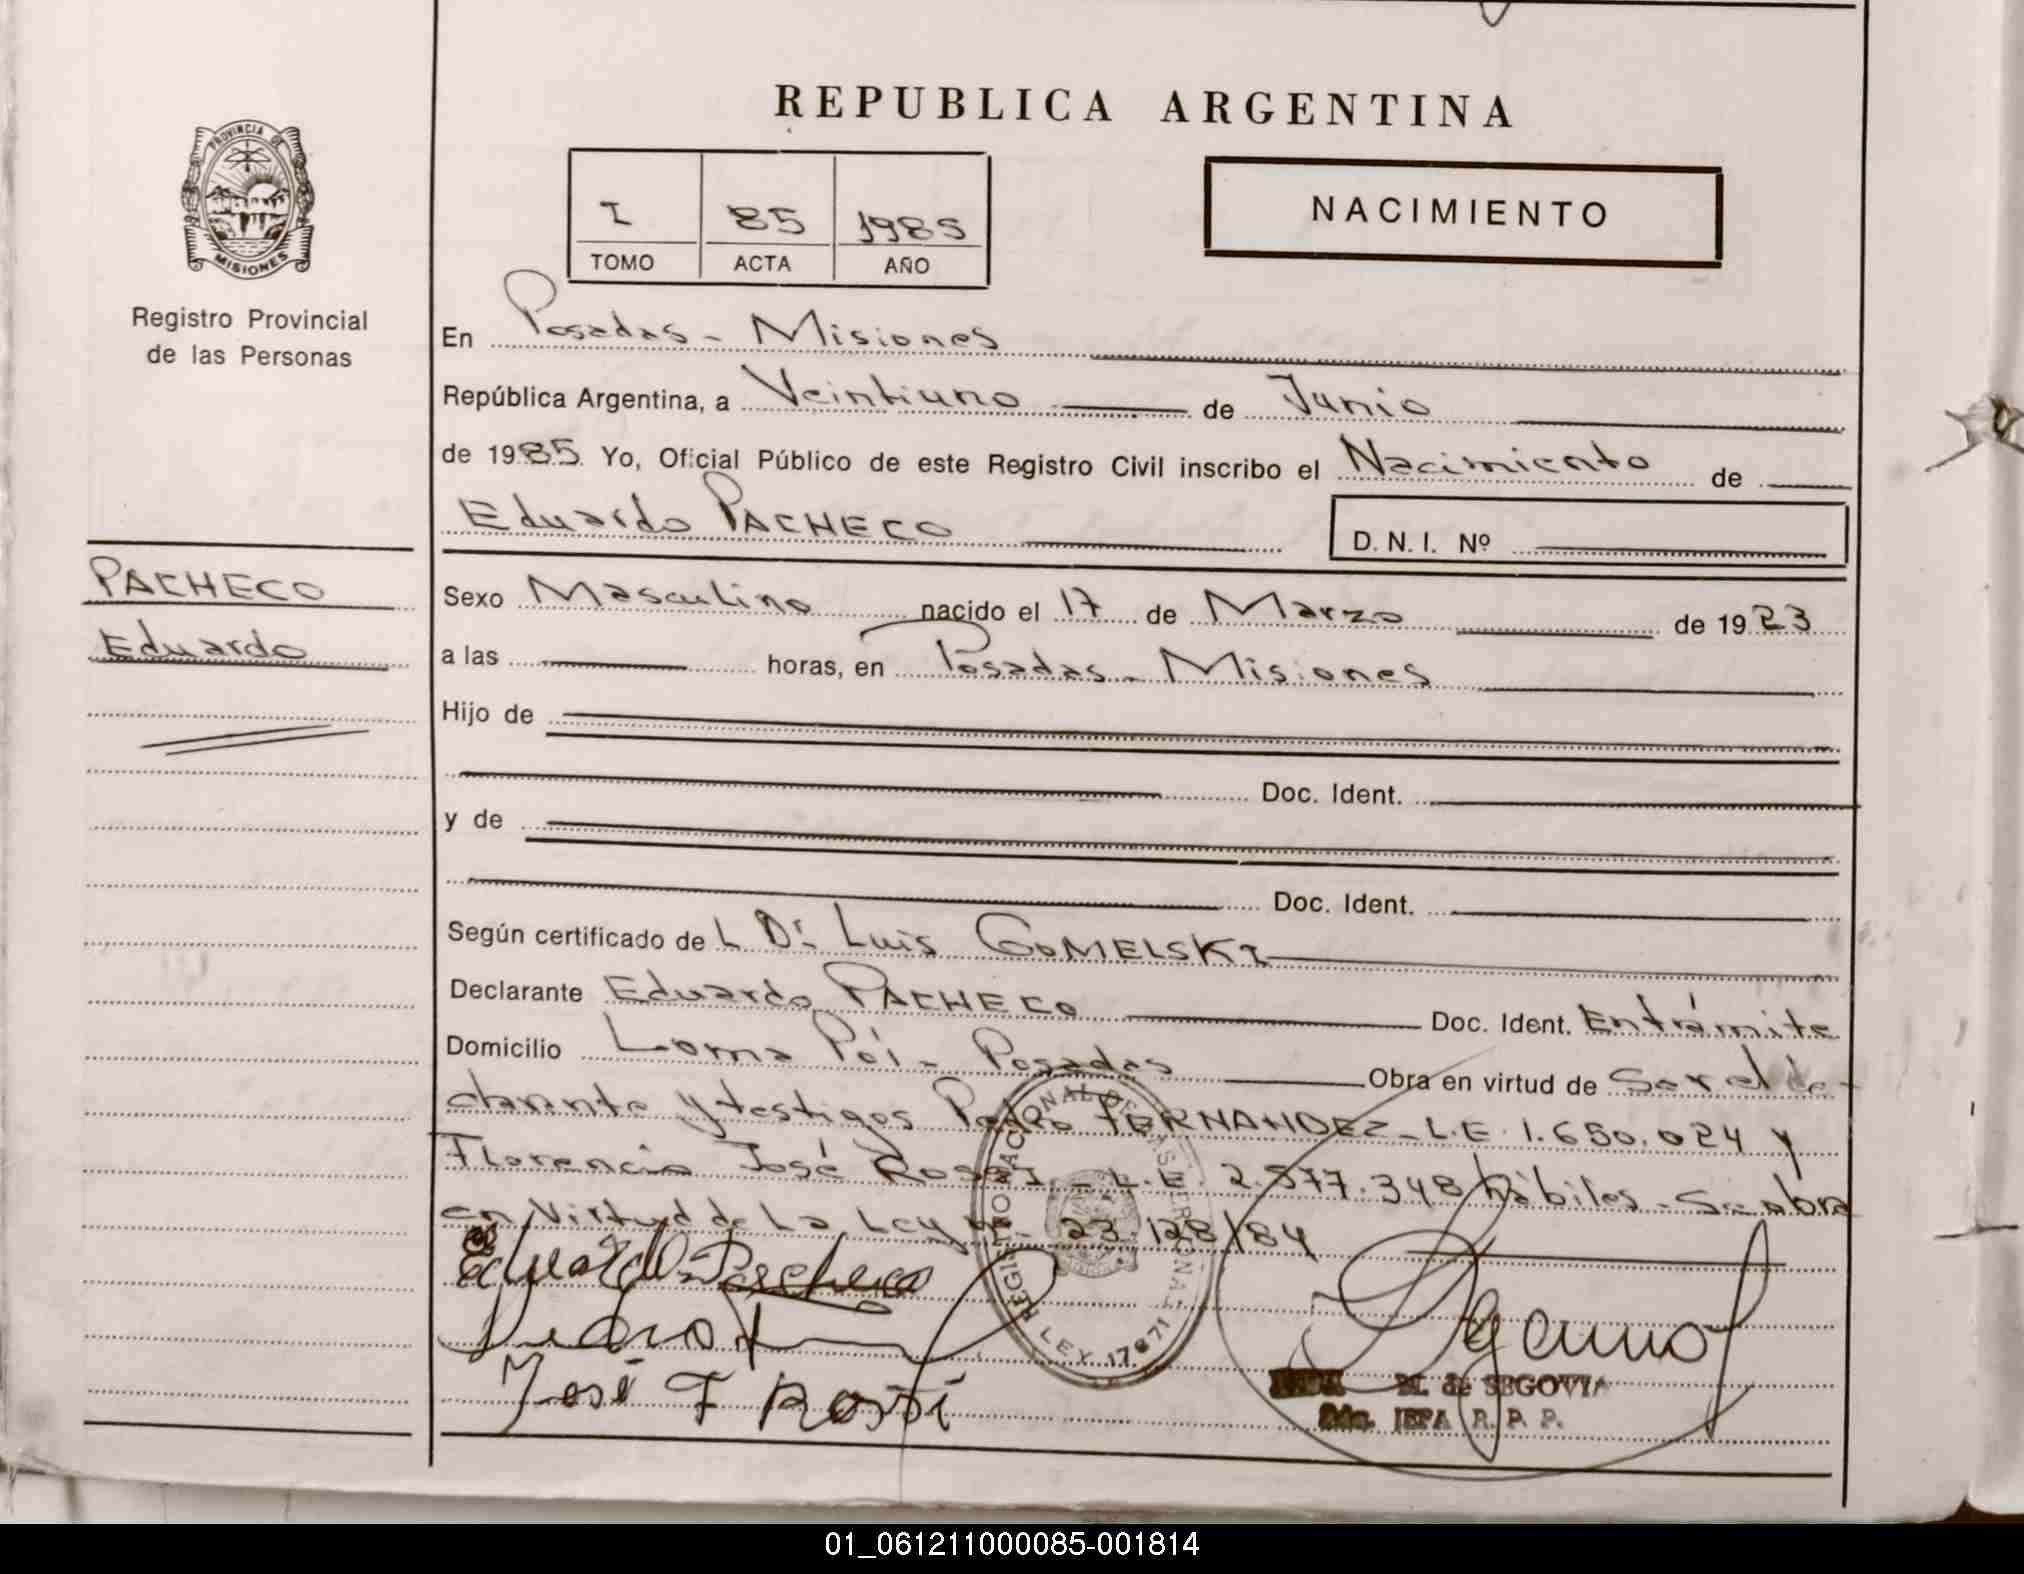 REPUBLICA ARGENTINA
PROVINCIA DE
MISIONES
Registro Provincial
de las Personas
I 85 1985
TOMO ACTA AÑO
NACIMIENTO
En Posadas - Misiones
República Argentina, a Veintiuno de Junio
de 1985 Yo, Oficial Público de este Registro Civil inscribo el Nacimiento de
Eduardo PACHECO
D. N. I. Nº
PACHECO
Eduardo
Sexo Masculino nacido el 17 de Marzo de 1923
a las horas, en Posadas - Misiones
Hijo de
Doc. Ident.
y de
Doc. Ident.
Según certificado de L Dr. Luis GOMELSKI
Declarante Eduardo PACHECO Doc. Ident. Entrámite
Domicilio Loma Poí - Posadas Obra en virtud de Ser el de-
clarante y testigos Pedro FERNANDEZ - L.E. 1.650.024 y
Florencio José ROSSI - L.E. 2.577.348 hábiles -
en Virtud de La Ley Nº 23.128/84
Eduardo Pacheco
Pedro F
José F Rossi
REGISTRO NACIONAL DE LAS PERSONAS
LEY 17671
M. de SEGOVIA
JEFA R. P. P.
01_061211000085-001814